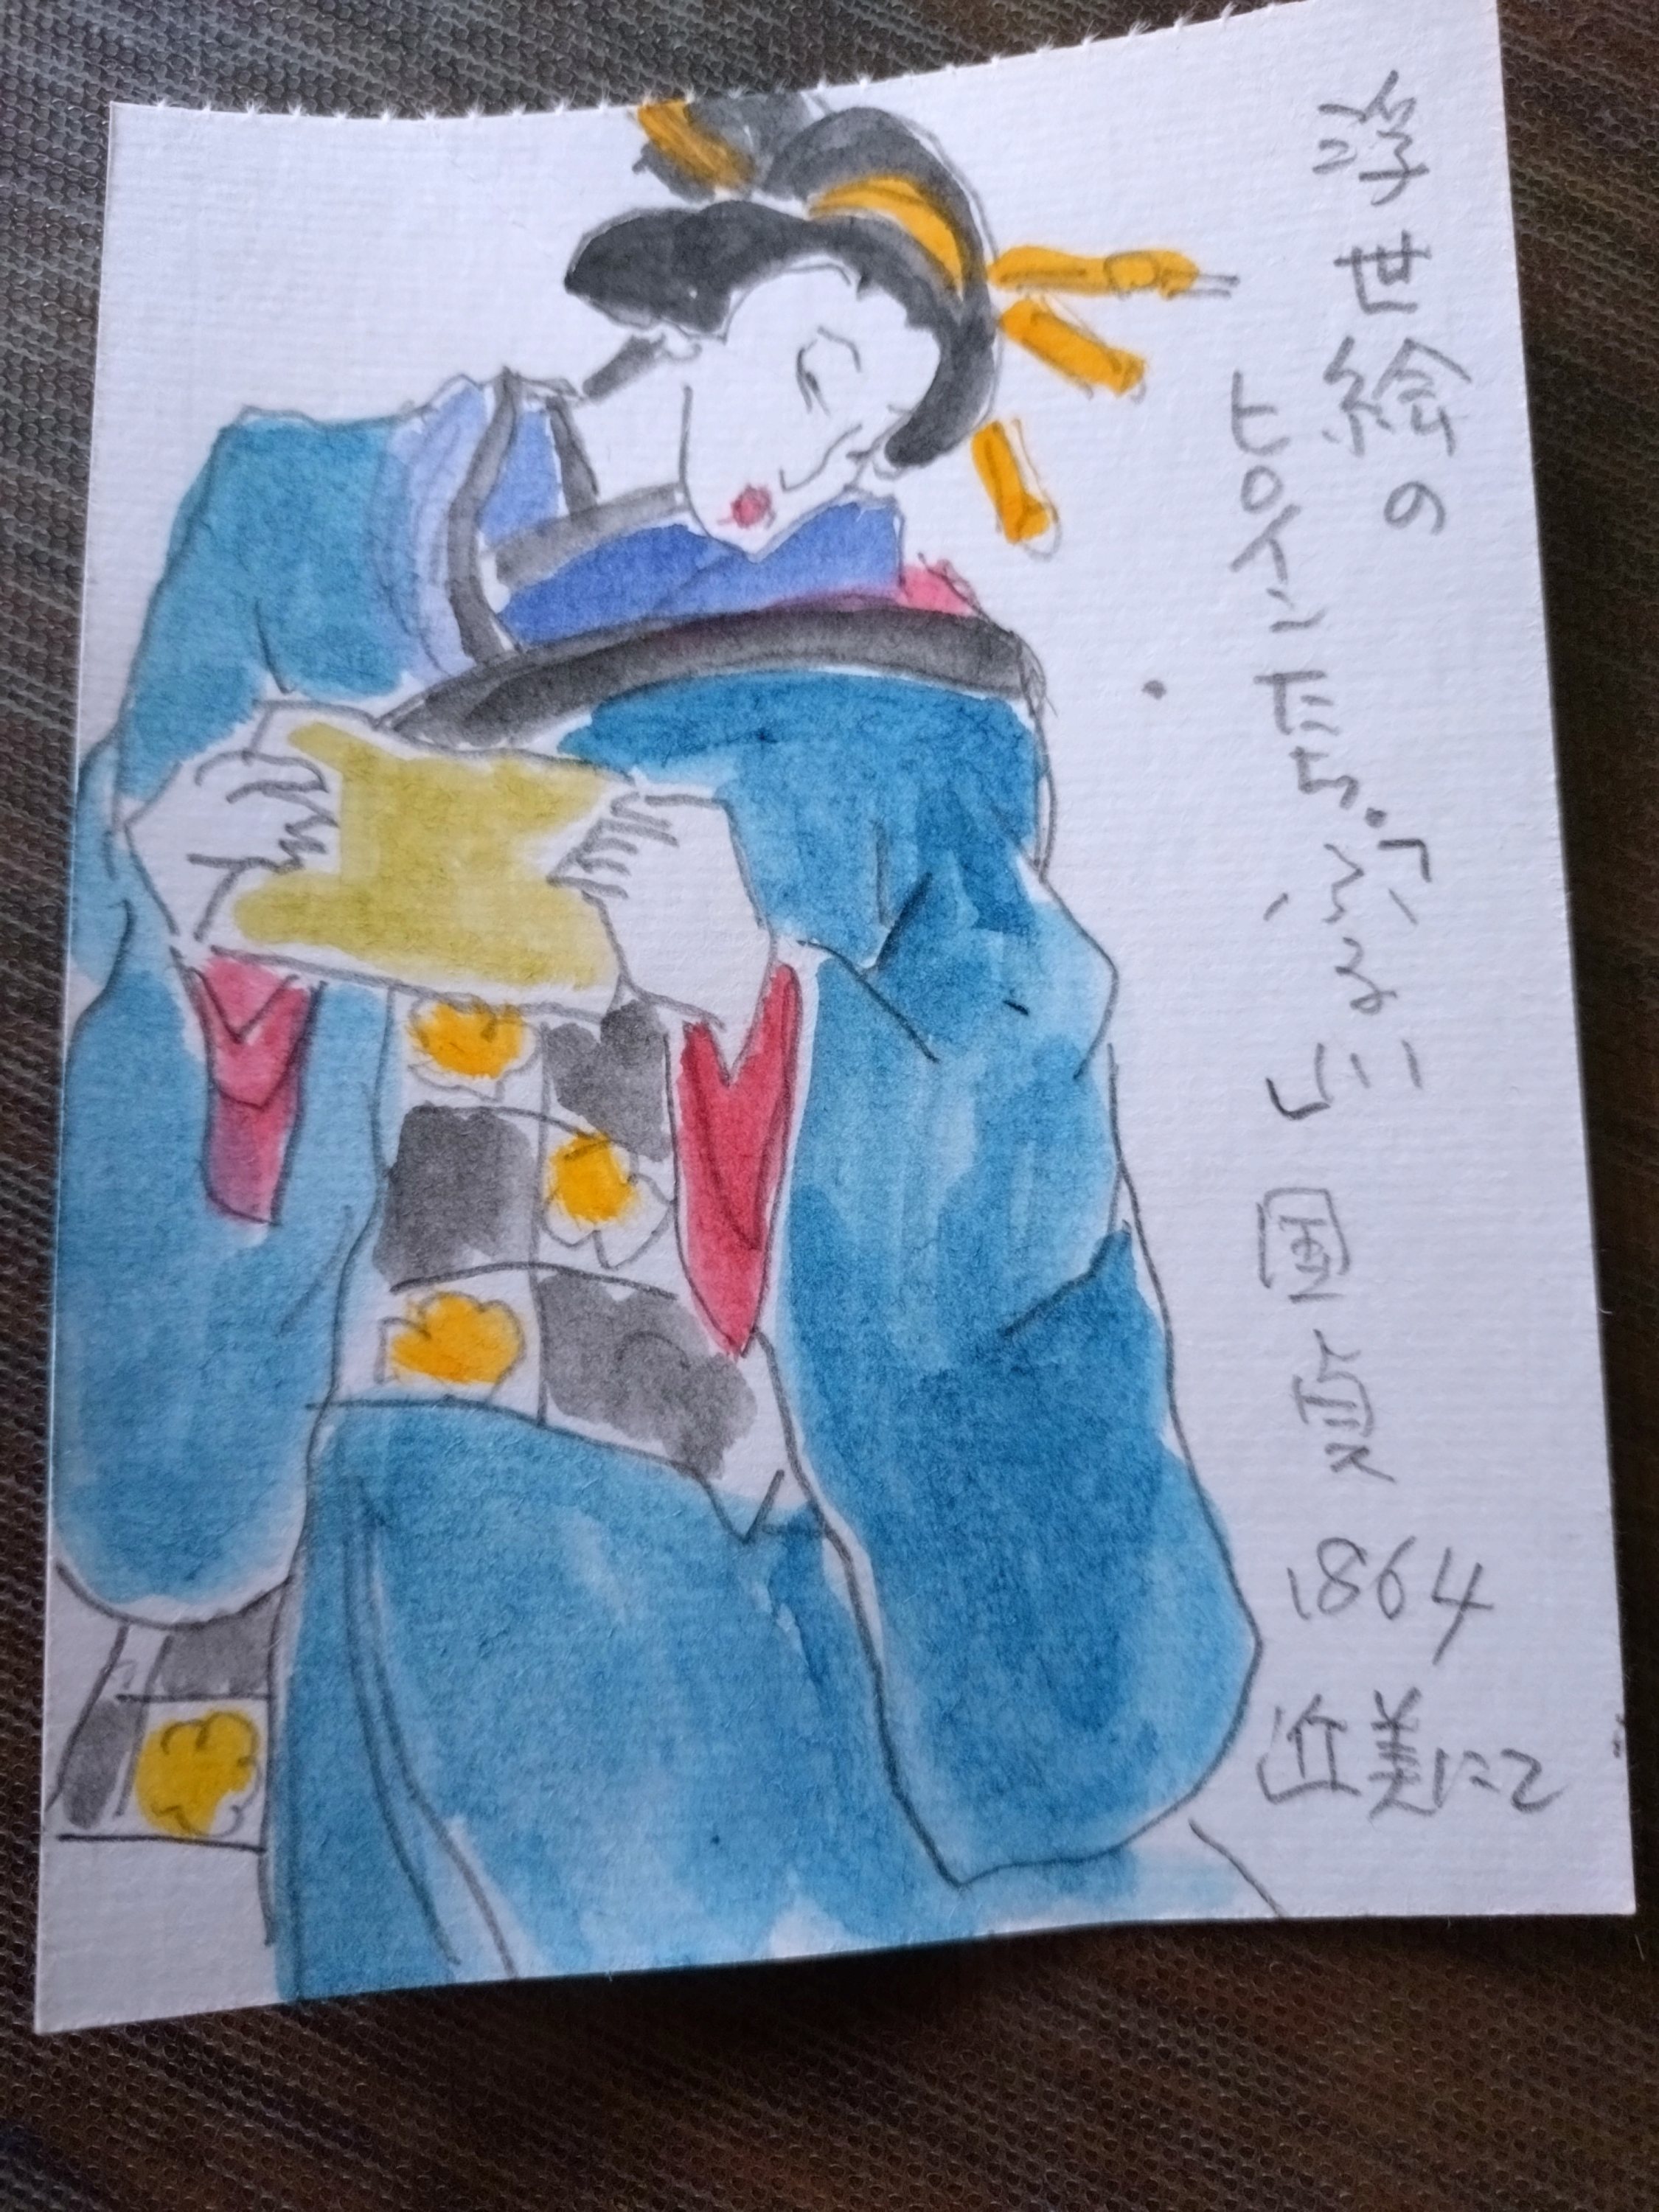 浮世絵の
ヒロインたち
国貞
1864
近美にて